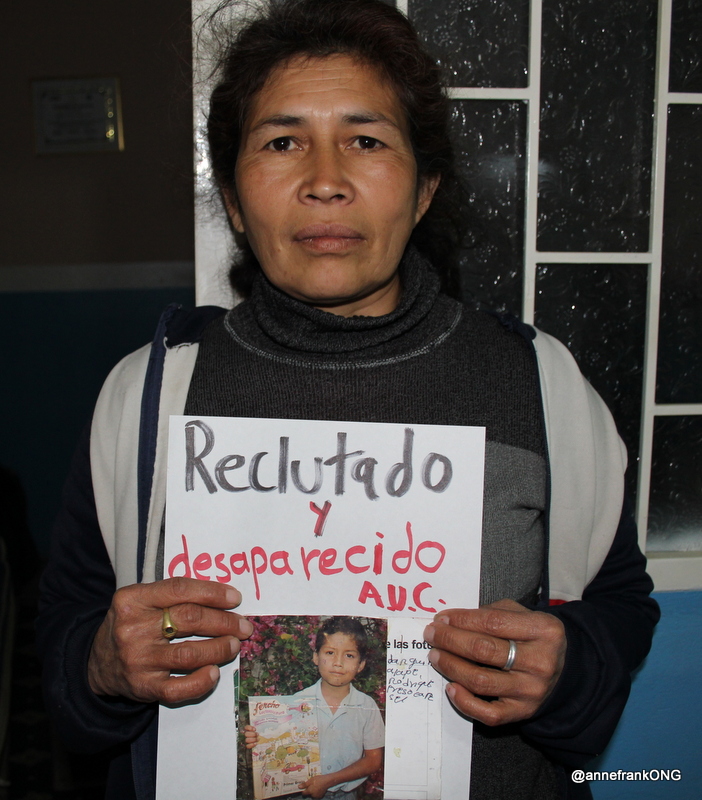 Reclutado
y
desaparecido
A.U.C.
e las foto
@annefrankONG